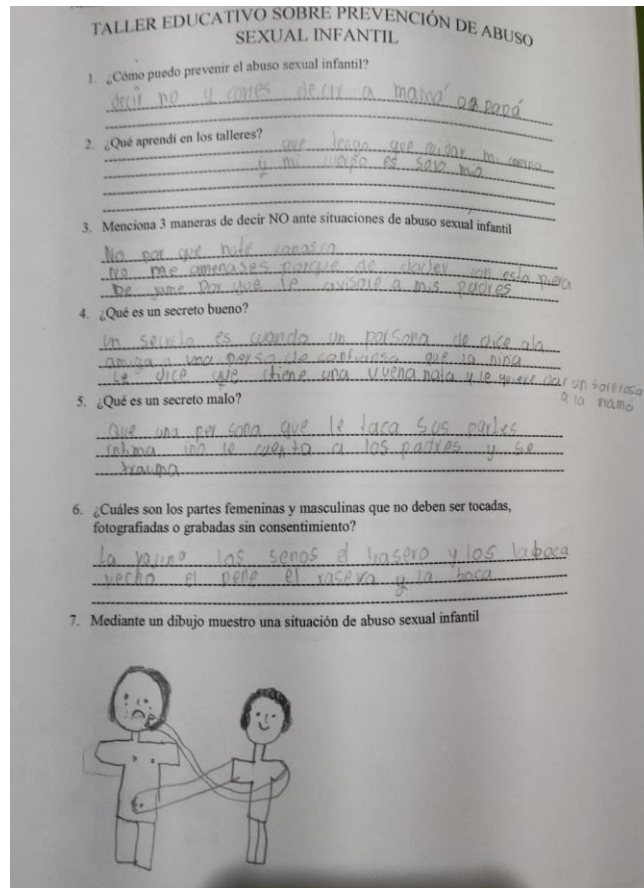 TALLER EDUCATIVO SOBRE PREVENCIÓN DE ABUSO
SEXUAL INFANTIL
1. ¿Cómo puedo prevenir el abuso sexual infantil?
decir no y corres decir a mamá o a papá
2. ¿Qué aprendí en los talleres?
que tengo que cuidar mi cuerpo
y mi cuerpo es solo mio
3. Menciona 3 maneras de decir NO ante situaciones de abuso sexual infantil
No por que
No me amenases porque de con esta piera
De jame Por que le avisare a mis padres
4. ¿Qué es un secreto bueno?
un secreto es cuando un persona de dice ala
amiga a una persa de confiansa que la niña
le dice que tiene una vuena nota y le quiere dar un sorprosa
a la mamá
5. ¿Qué es un secreto malo?
Que una per sona que le taca sus partes
íntima no le cuenta a los padres y se
trauma
6. ¿Cuáles son los partes femeninas y masculinas que no deben ser tocadas,
fotografiadas o grabadas sin consentimiento?
La vajina los senos el trasero y los la boca
pecho el pene el trasero y la boca
7. Mediante un dibujo muestro una situación de abuso sexual infantil